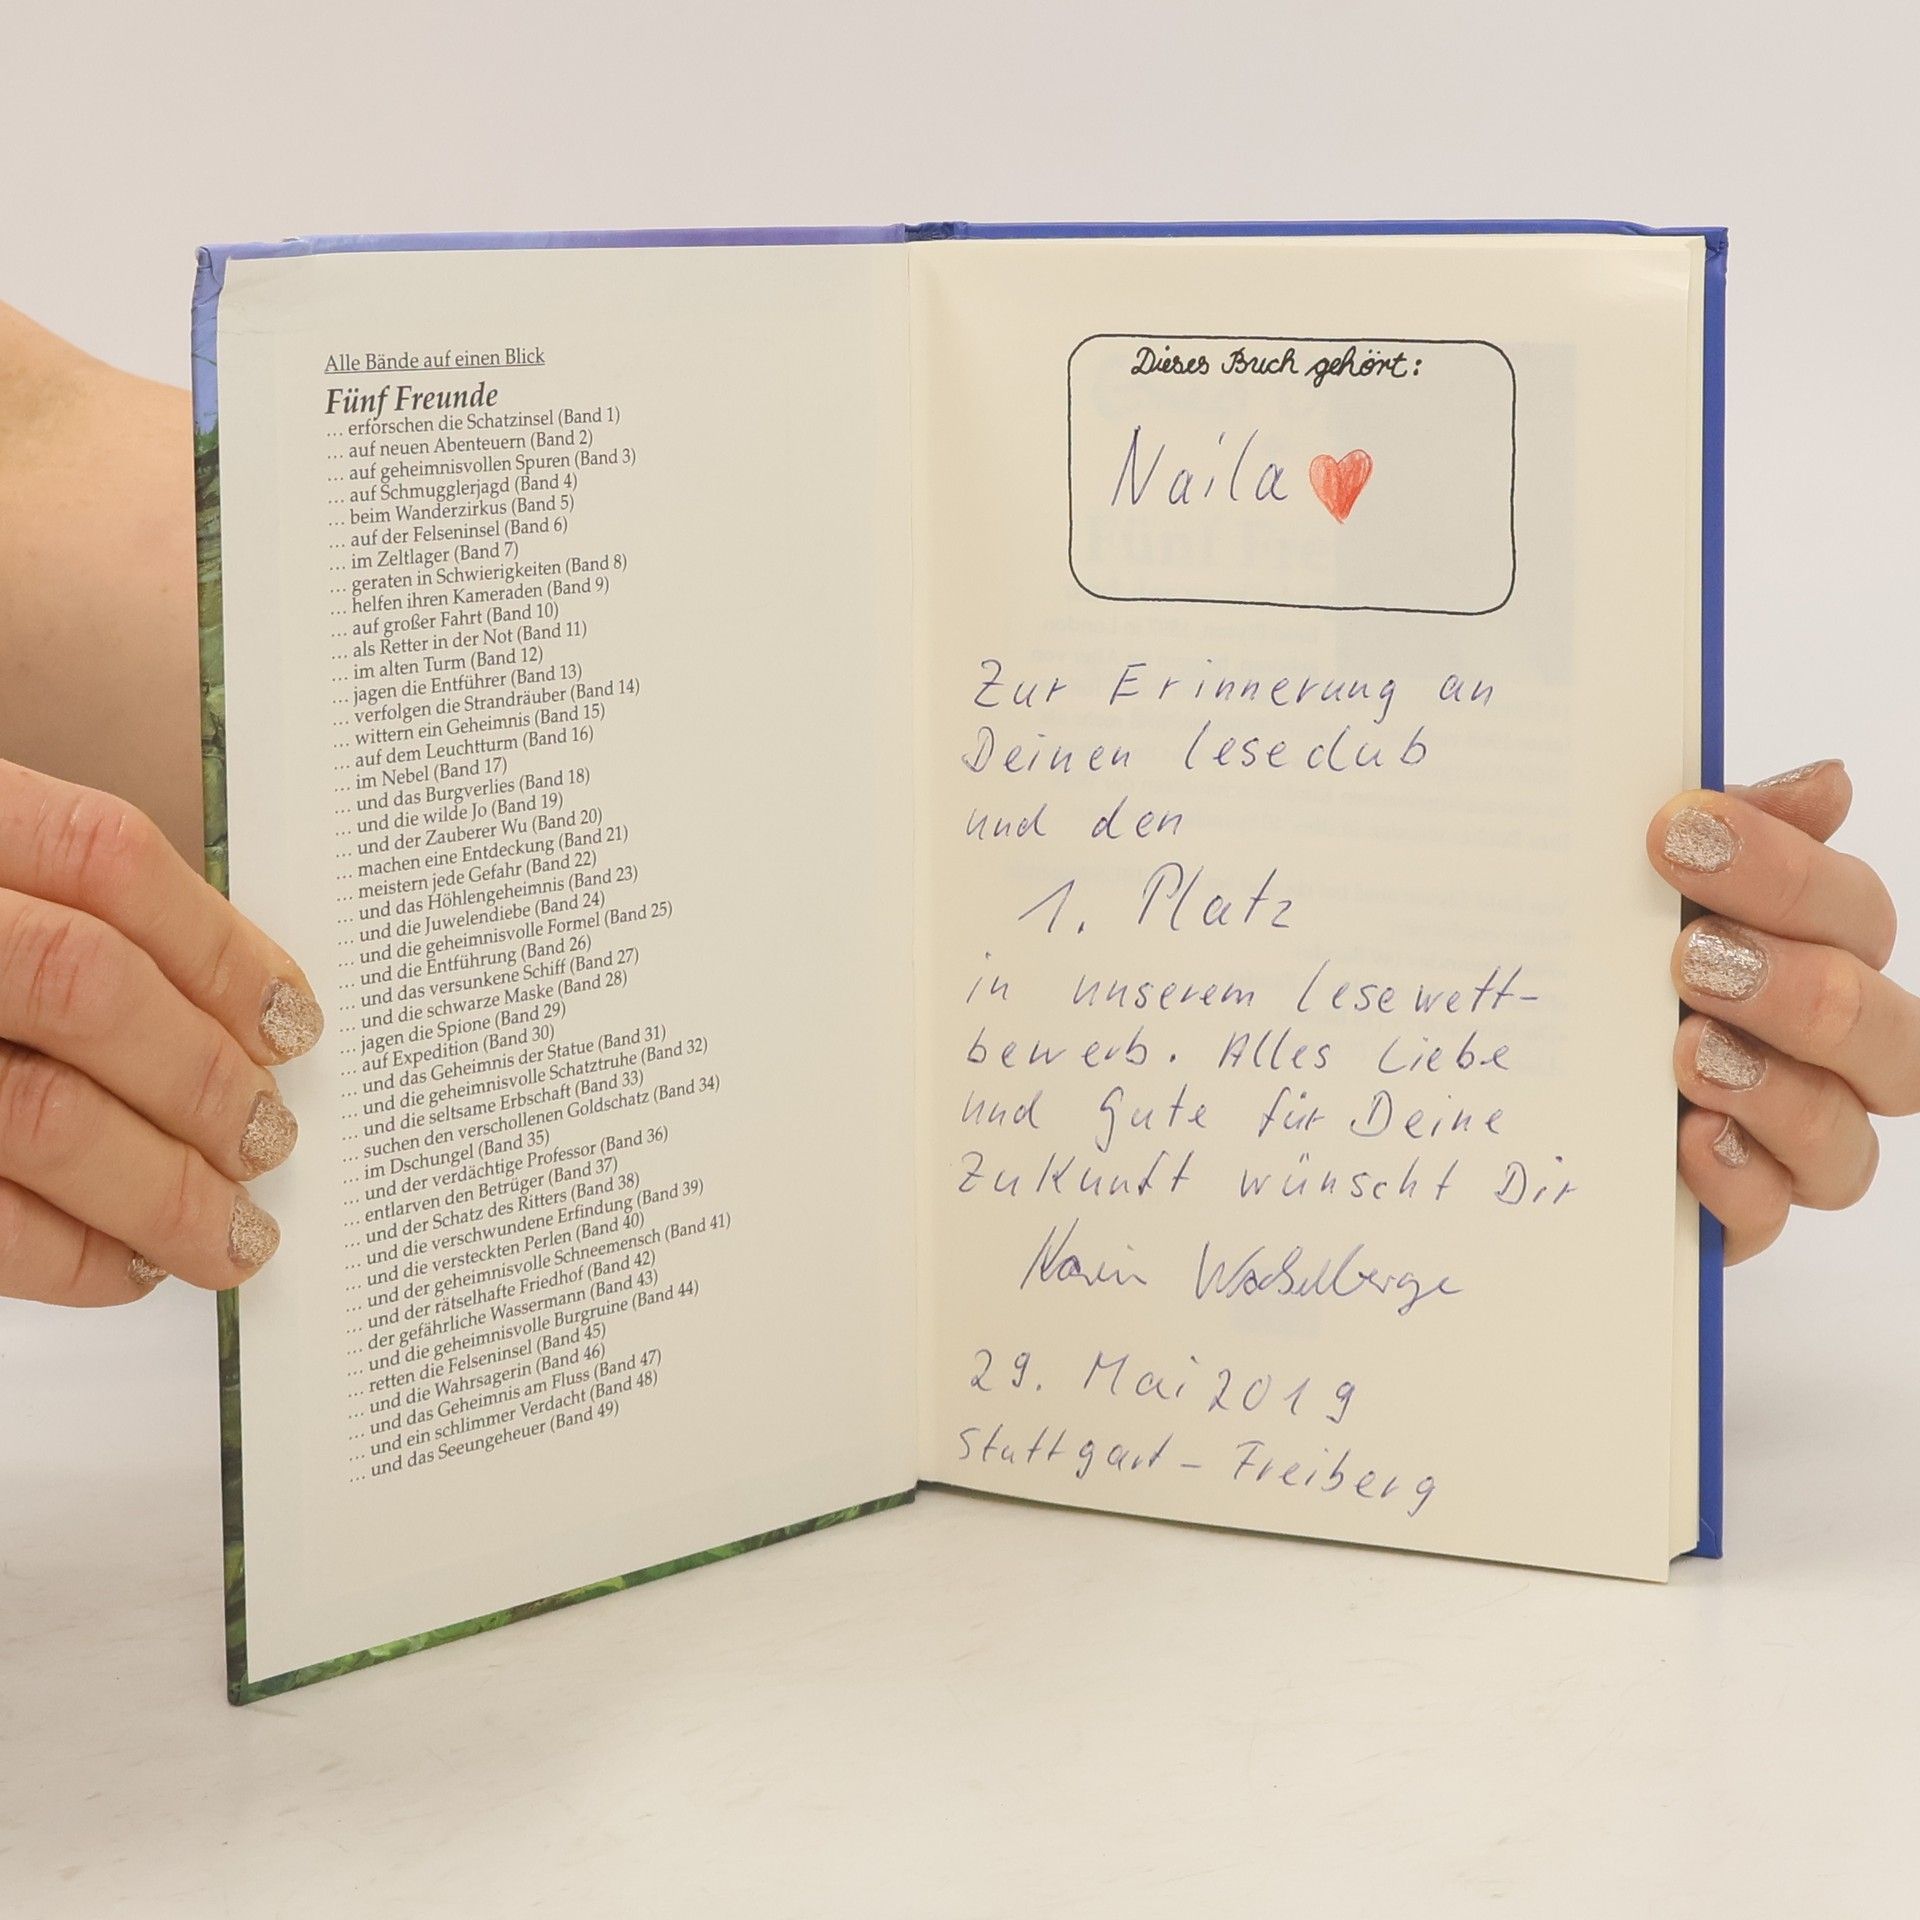 Alle Bände auf einen Blick
Fünf Freunde
... erforschen die Schatzinsel (Band 1)
... auf neuen Abenteuern (Band 2)
... auf geheimnisvollen Spuren (Band 3)
... auf Schmugglerjagd (Band 4)
... beim Wanderzirkus (Band 5)
... auf der Felseninsel (Band 6)
... im Zeltlager (Band 7)
... geraten in Schwierigkeiten (Band 8)
... helfen ihren Kameraden (Band 9)
... auf großer Fahrt (Band 10)
... als Retter in der Not (Band 11)
... im alten Turm (Band 12)
... jagen die Entführer (Band 13)
... verfolgen die Strandräuber (Band 14)
... wittern ein Geheimnis (Band 15)
... auf dem Leuchtturm (Band 16)
... im Nebel (Band 17)
... und das Burgverlies (Band 18)
... und die wilde Jo (Band 19)
... und der Zauberer Wu (Band 20)
... machen eine Entdeckung (Band 21)
... meistern jede Gefahr (Band 22)
... und das Höhlengeheimnis (Band 23)
... und die Juwelendiebe (Band 24)
... und die geheimnisvolle Formel (Band 25)
... und die Entführung (Band 26)
... und das versunkene Schiff (Band 27)
... und die schwarze Maske (Band 28)
... jagen die Spione (Band 29)
... auf Expedition (Band 30)
... und das Geheimnis der Statue (Band 31)
... und die geheimnisvolle Schatztruhe (Band 32)
... und die seltsame Erbschaft (Band 33)
... suchen den verschollenen Goldschatz (Band 34)
... im Dschungel (Band 35)
... und der verdächtige Professor (Band 36)
... entlarven den Betrüger (Band 37)
... und der Schatz des Ritters (Band 38)
... und die verschwundene Erfindung (Band 39)
... und die versteckten Perlen (Band 40)
... und der geheimnisvolle Schneemensch (Band 41)
... und der rätselhafte Friedhof (Band 42)
... der gefährliche Wassermann (Band 43)
... und die geheimnisvolle Burgruine (Band 44)
... retten die Felseninsel (Band 45)
... und die Wahrsagerin (Band 46)
... und das Geheimnis am Fluss (Band 47)
... und ein schlimmer Verdacht (Band 48)
... und das Seeungeheuer (Band 49)
Dieses Buch gehört:
Naila
Zur Erinnerung an
Deinen Leseclub
und den
1. Platz
in unserem Lesewett-
bewerb. Alles Liebe
und Gute für Deine
Zukunft wünscht Dir
Karin
29. Mai 2019
Stuttgart - Freiberg